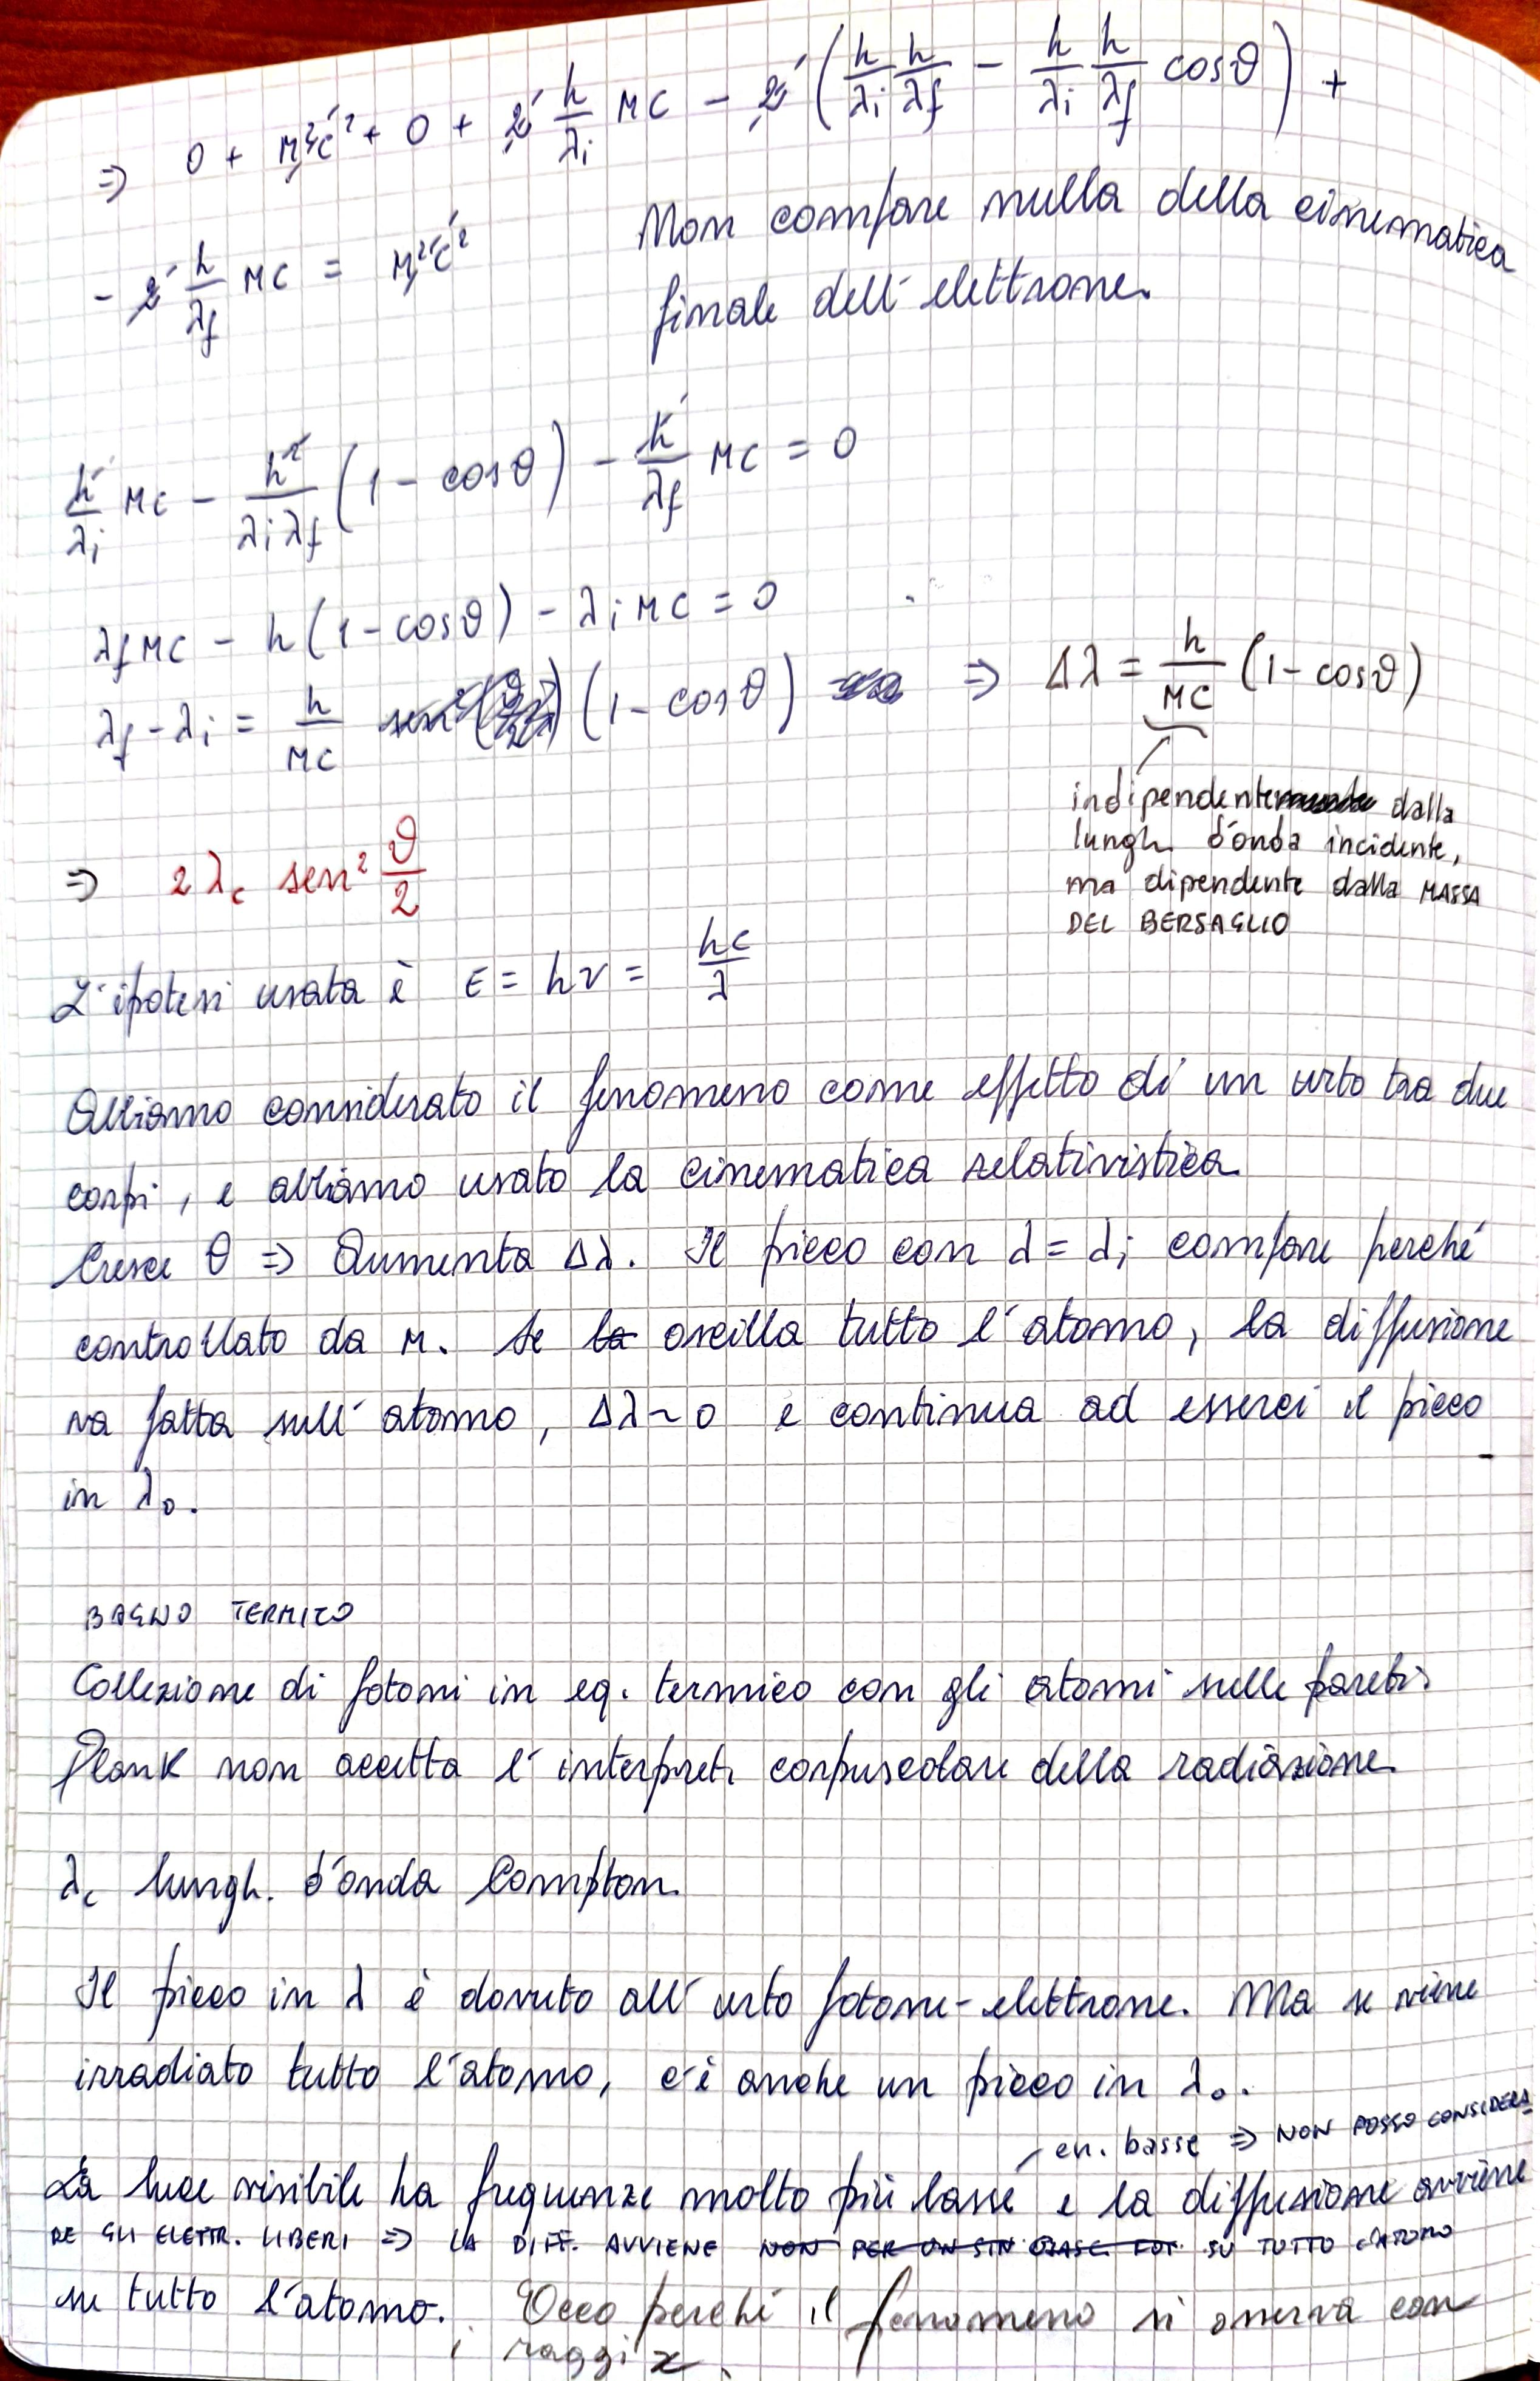 ⇒ 0 + M²c² + 0 + 2 h/λi MC - 2 (h/λi h/λf - h/λi h/λf cosθ) +
- 2 h/λf MC = M²c²
Non compare nulla della cinematica
finale dell'elettrone.
h/λi MC - h²/λiλf (1 - cosθ) - h/λf MC = 0
λf MC - h (1 - cosθ) - λi MC = 0
λf - λi = h/MC (1 - cosθ) ⇒ Δλ = h/MC (1 - cosθ)
indipendente dalla
lungh. d'onda incidente,
ma dipendente dalla MASSA
DEL BERSAGLIO
⇒ 2 λc sen² θ/2
L'ipotesi usata è E = hν = hc/λ
Abbiamo considerato il fenomeno come effetto di un urto tra due
corpi, e abbiamo usato la cinematica relativistica.
Cresce θ ⇒ Aumenta Δλ. Il picco con λ = λi compare perché
controllato da M. Se la oscilla tutto l'atomo, la diffusione
va fatta sull'atomo, Δλ ~ 0 e continua ad esserci il picco
in λ0.
BAGNO TERMICO
Collezione di fotoni in eq. termico con gli atomi sulle pareti.
Plank non accetta l'interpret. corpuscolare della radiazione.
λc lungh. d'onda Compton.
Il picco in λ è dovuto all'urto fotone-elettrone. Ma se viene
irradiato tutto l'atomo, c'è anche un picco in λ0.
en. basse ⇒ NON POSSO CONSIDERA
La luce visibile ha frequenze molto più basse e la diffusione avviene
RE GLI ELETTR. LIBERI ⇒ LA DIFF. AVVIENE NON PER UN SU TUTTO L'ATOMO
su tutto l'atomo. Ecco perché il fenomeno si osserva con
i raggi x.